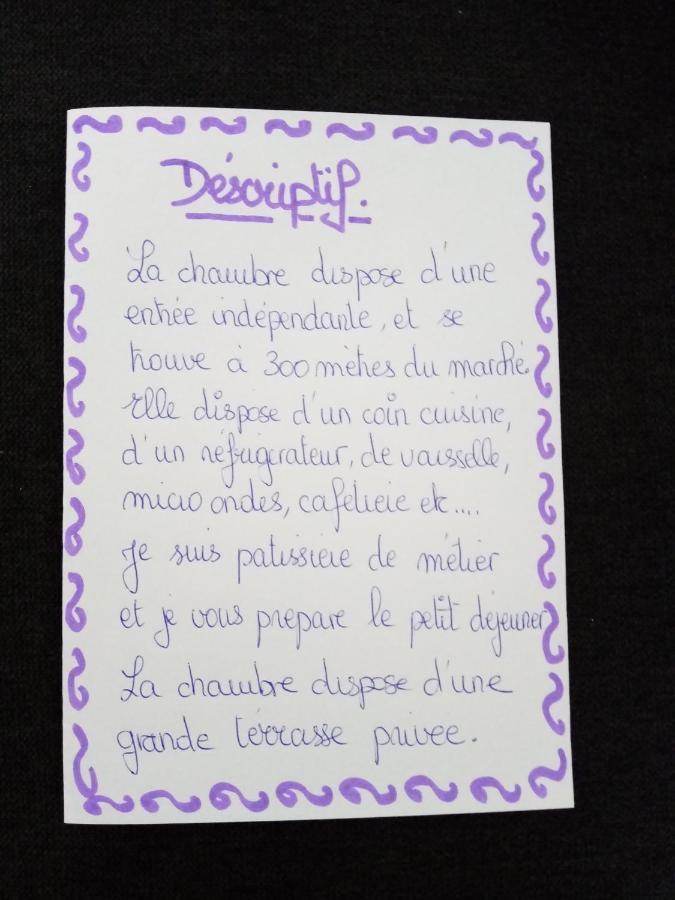 Déscriptif.
La chambre dispose d'une
entrée indépendante, et se
trouve à 300 mètres du marché.
Elle dispose d'un coin cuisine,
d'un réfrigérateur, de vaisselle,
micro ondes, cafétière etc....
Je suis patissière de métier
et je vous prépare le petit déjeuner
La chambre dispose d'une
grande térrasse privée.